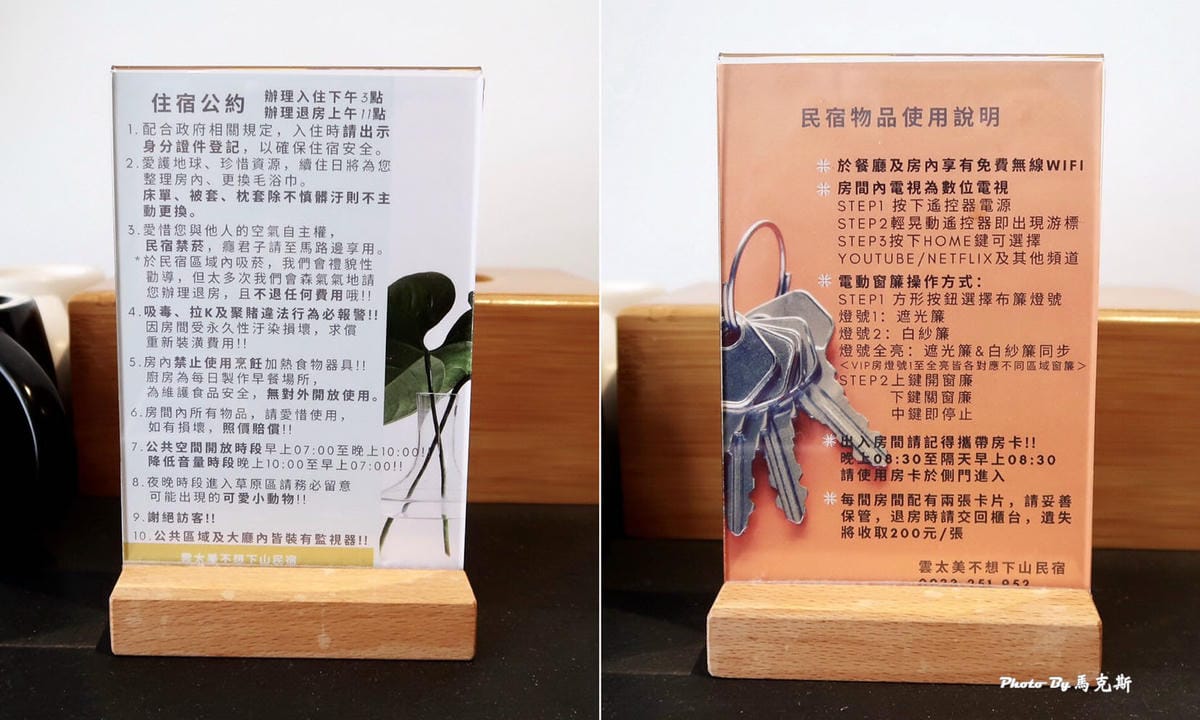 住宿公約
辦理入住下午3點
辦理退房上午11點
1.配合政府相關規定，入住時請出示
身分證件登記，以確保住宿安全。
2.愛護地球、珍惜資源，續住日將為您
整理房內、更換毛浴巾。
床單、被套、枕套除不慎髒汙則不主
動更換。
3.愛惜您與他人的空氣自主權，
民宿禁菸，癮君子請至馬路邊享用。
*於民宿區域內吸菸，我們會禮貌性
勸導，但太多次我們會森氣氣地請
您辦理退房，且不退任何費用哦!!
4.吸毒、拉K及聚賭違法行為必報警!!
因房間受永久性汙染損壞，求償
重新裝潢費用!!
5.房內禁止使用烹飪加熱食物器具!!
廚房為每日製作早餐場所，
為維護食品安全，無對外開放使用。
6.房間內所有物品，請愛惜使用，
如有損壞，照價賠償!!
7.公共空間開放時段早上07:00至晚上10:00!!
降低音量時段晚上10:00至早上07:00!!
8.夜晚時段進入草原區請務必留意
可能出現的可愛小動物!!
9.謝絕訪客!!
10.公共區域及大廳內皆裝有監視器!!
雲太美不想下山民宿
民宿物品使用說明
於餐廳及房內享有免費無線WIFI
房間內電視為數位電視
STEP1 按下遙控器電源
STEP2輕晃動遙控器即出現游標
STEP3按下HOME鍵可選擇
YOUTUBE/NETFLIX及其他頻道
電動窗簾操作方式:
STEP1 方形按鈕選擇布簾燈號
燈號1: 遮光簾
燈號2: 白紗簾
燈號全亮: 遮光簾&白紗簾同步
<VIP房燈號1至全亮皆各對應不同區域窗簾>
STEP2上鍵開窗簾
下鍵關窗簾
中鍵即停止
出入房間請記得攜帶房卡!!
晚上08:30至隔天早上08:30
請使用房卡於側門進入
每間房間配有兩張卡片，請妥善
保管，退房時請交回櫃台，遺失
將收取200元/張
雲太美不想下山民宿
Photo By 馬克斯